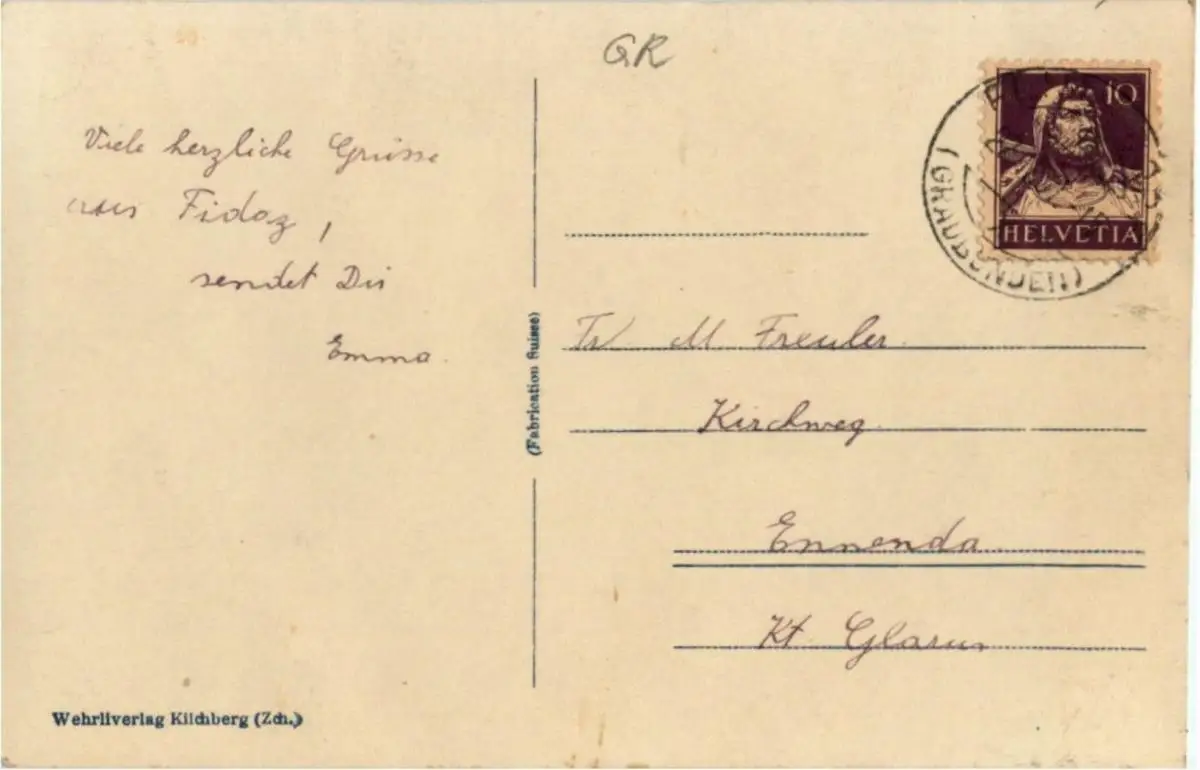 GR
Viele herzliche Grüsse
aus Fidaz,
sendet Dir
Emma.
(Fabrication Suisse)
10
HELVETIA
(GRAUBÜNDEN)
M Freuler.
Kirchweg.
Ennenda.
Kt Glarus
Wehrliverlag Kilchberg (Zch.)